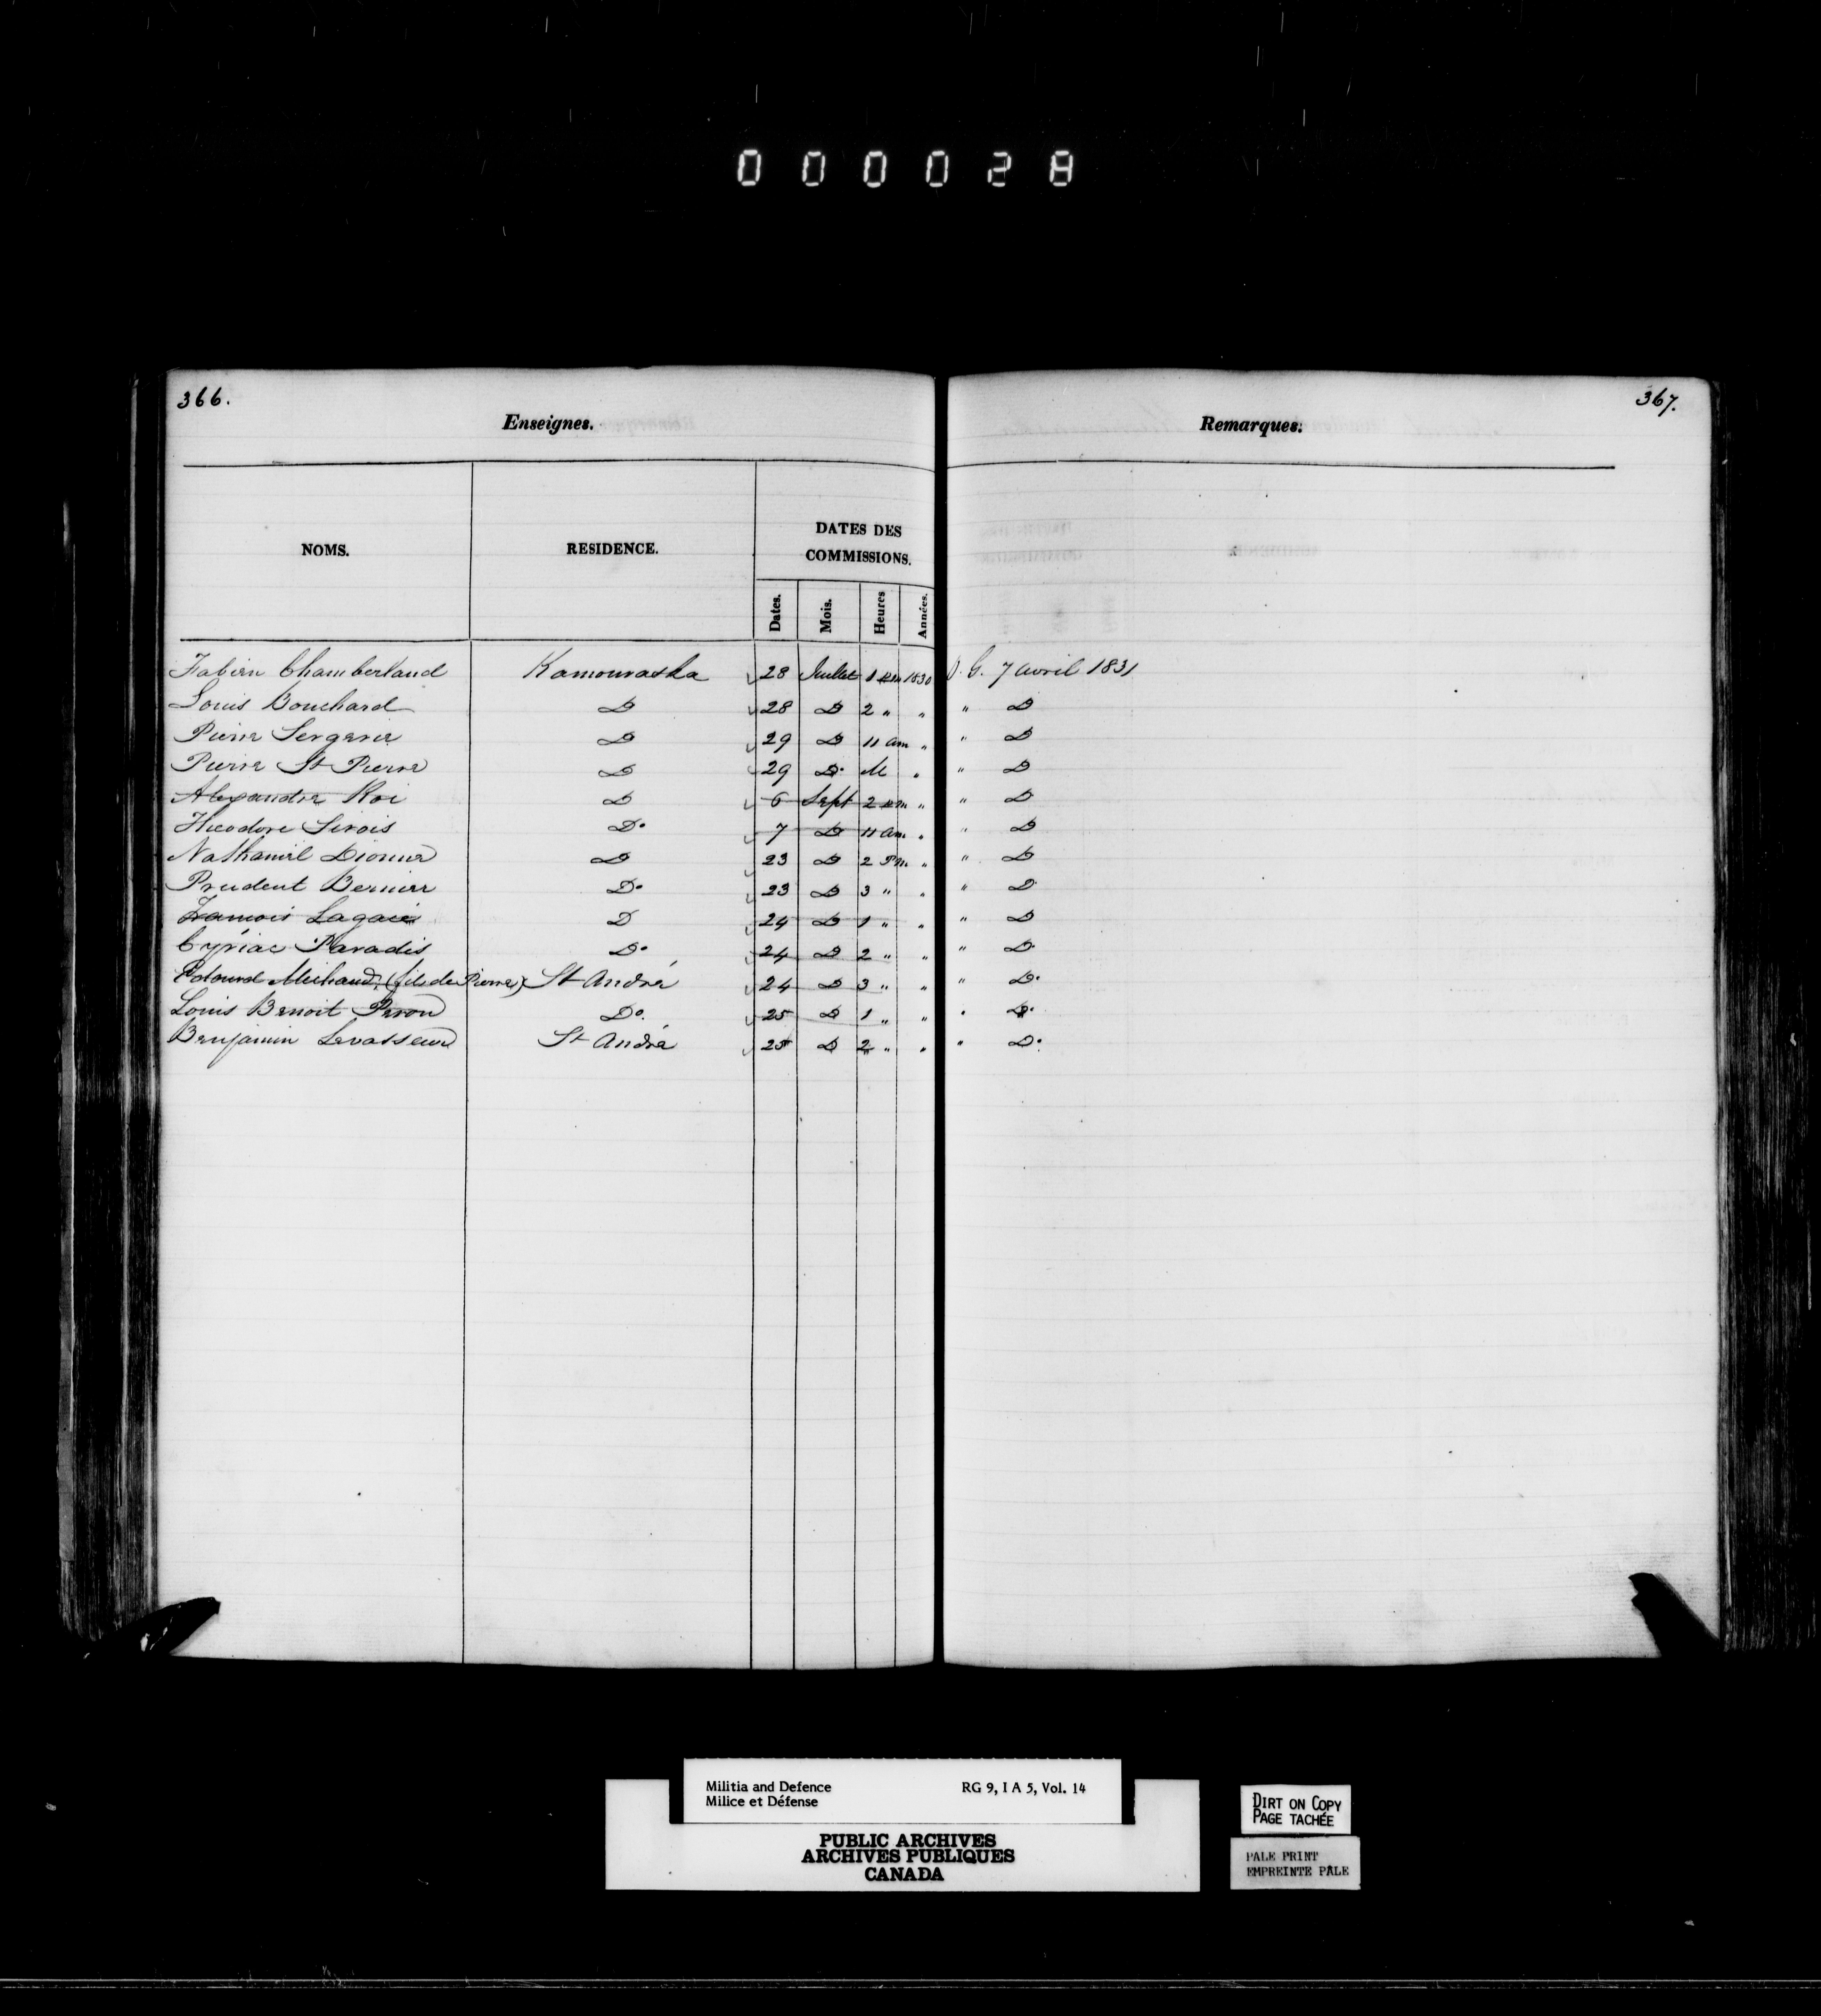 000028
366.
Enseignes.
NOMS. RESIDENCE. DATES DES COMMISSIONS.
Dates. Mois. Heures Années.
Fabien Chamberland Kamouraska 28 Juillet 1 pm 1830
Louis Bouchard D 28 D 2 " "
Pierre Sergerie D 29 D 11 am "
Pierre St Pierre D 29 Do M "
Alexandre Roi D 6 Sept 2 pm "
Theodore Sirois Do 7 D 11 am "
Nathaniel Dionne D 23 D 2 Pm "
Prudent Bernier Do 23 D 3 " "
Francois Lagacé D 24 D 1 " "
Cyriac Paradis Do 24 D 2 " "
Edouard Michaud, (fils de Pierre) St André 24 D 3 " "
Louis Benoit Peron Do. 25 D 1 " "
Benjamin Levasseur St André 25 D 2 " "
367.
Remarques.
O. G. 7 avril 1831
" D
" D
" D
" D
" D
" D
" D
" D
" Do
" Do
" Do
" Do
Militia and Defence RG 9, I A 5, Vol. 14
Milice et Défense
PUBLIC ARCHIVES
ARCHIVES PUBLIQUES
CANADA
DIRT ON COPY
PAGE TACHÉE
PALE PRINT
EMPREINTE PÂLE